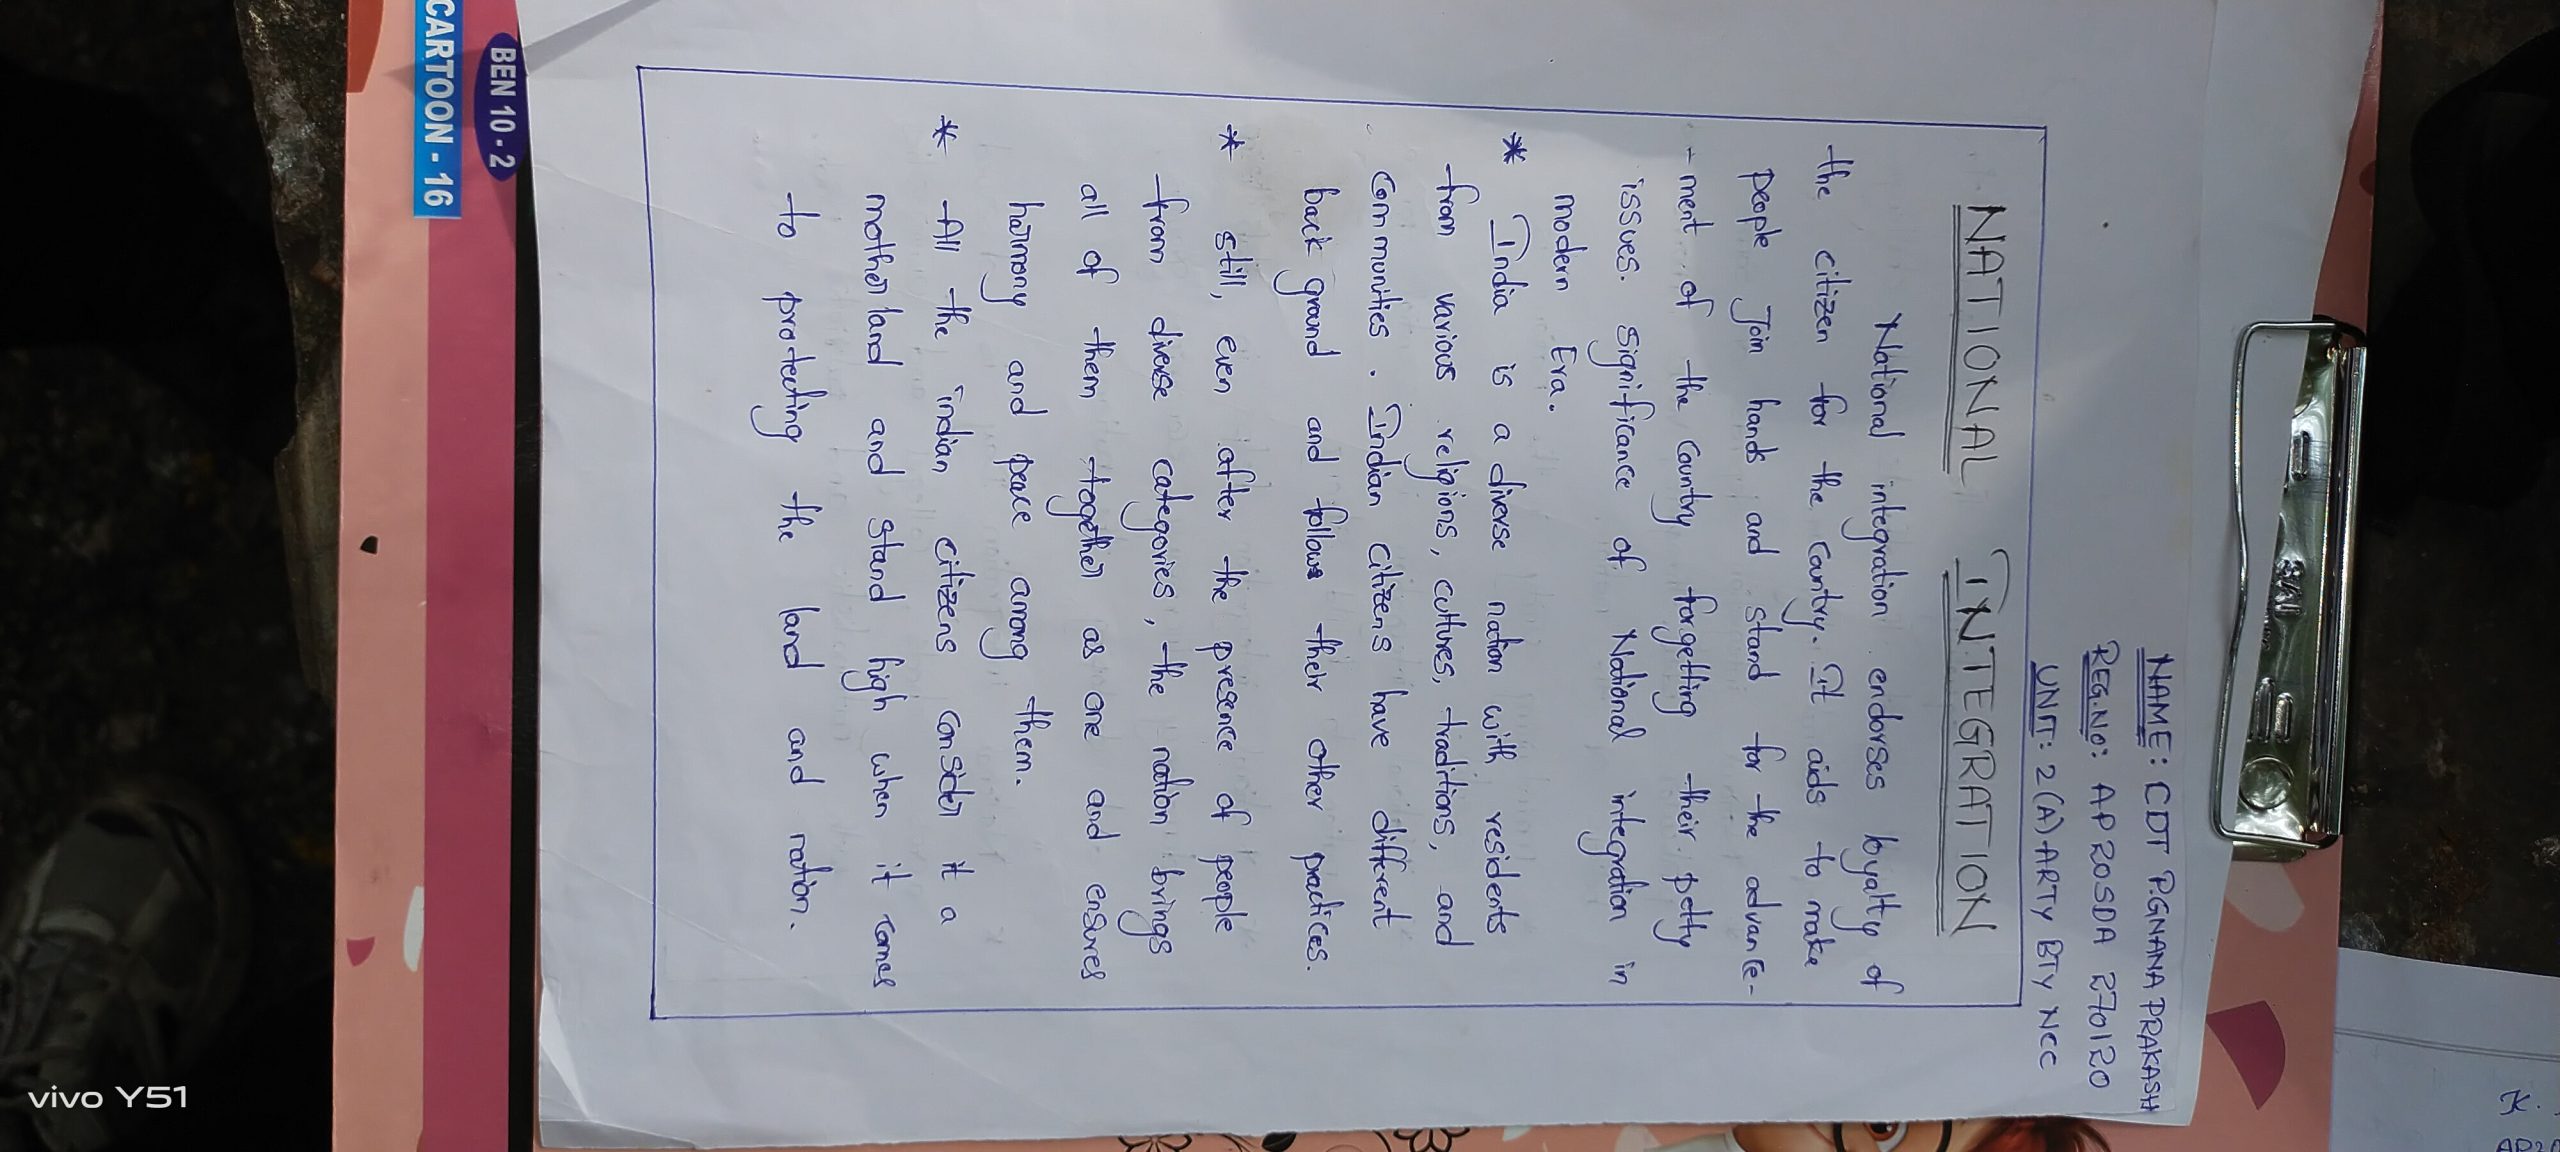 NAME: CDT P.GNANA PRAKASH
REG.No: AP20SDA 270120
UNIT: 2(A) ARTY BTY NCC
NATIONAL INTEGRATION
National integration endorses loyalty of
the citizen for the country. It aids to make
people Join hands and stand for the advance-
-ment of the country forgetting their petty
issues. significance of National integration in
modern Era.
* India is a diverse nation with residents
from various religions, cultures, traditions, and
communities. Indian citizens have different
back ground and follows their other practices.
* still, even after the presence of people
from diverse categories, the nation brings
all of them together as one and ensures
harmony and peace among them.
* All the indian citizens consider it a
mother land and stand high when it comes
to protecting the land and nation.
BEN 10 - 2
CARTOON - 16
K.
vivo Y51